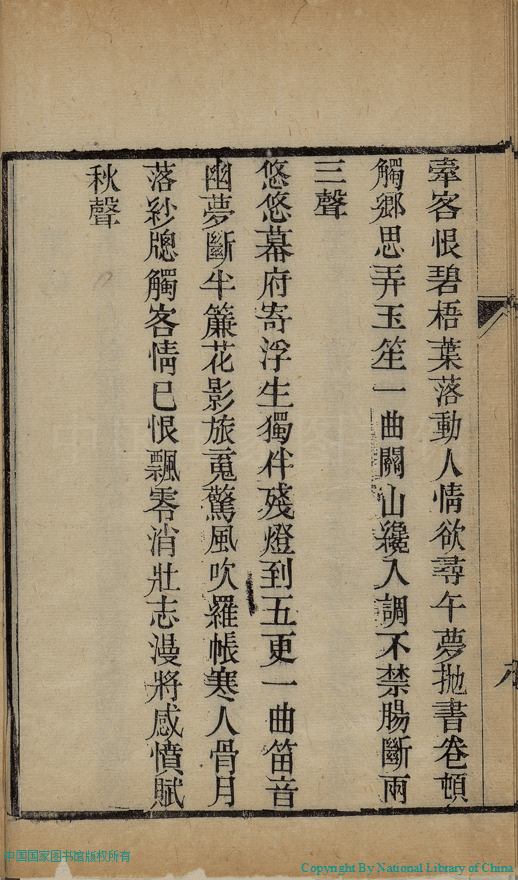 牽客恨碧梧葉落動人情欲尋午夢抛書卷頓
觸鄉思弄玉笙一曲關山纔入調不禁腸斷兩
三聲
悠悠幕府寄浮生獨伴殘燈到五更一曲笛音
幽夢斷半簾花影旅䰟驚風吹羅帳寒人骨月
落紗牕觸客情已恨飄零消壯志漫將感憤賦
秋聲
中国国家图书馆版权所有
Copyright By National Library of China